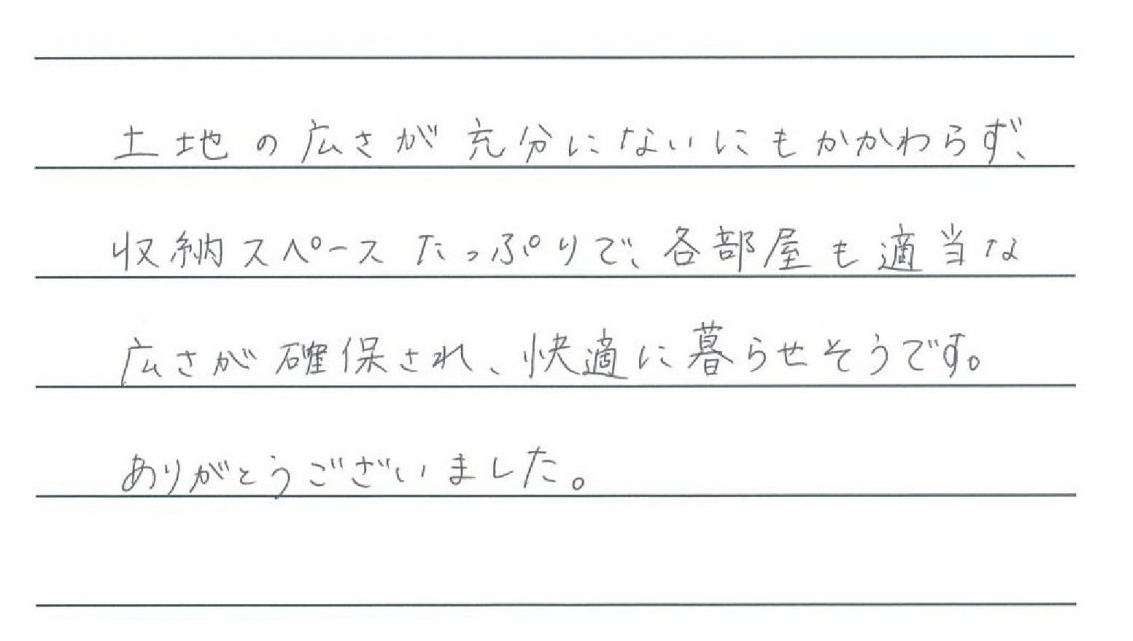 土地の広さが充分にないにもかかわらず、
収納スペースたっぷりで、各部屋も適当な
広さが確保され、快適に暮らせそうです。
ありがとうございました。